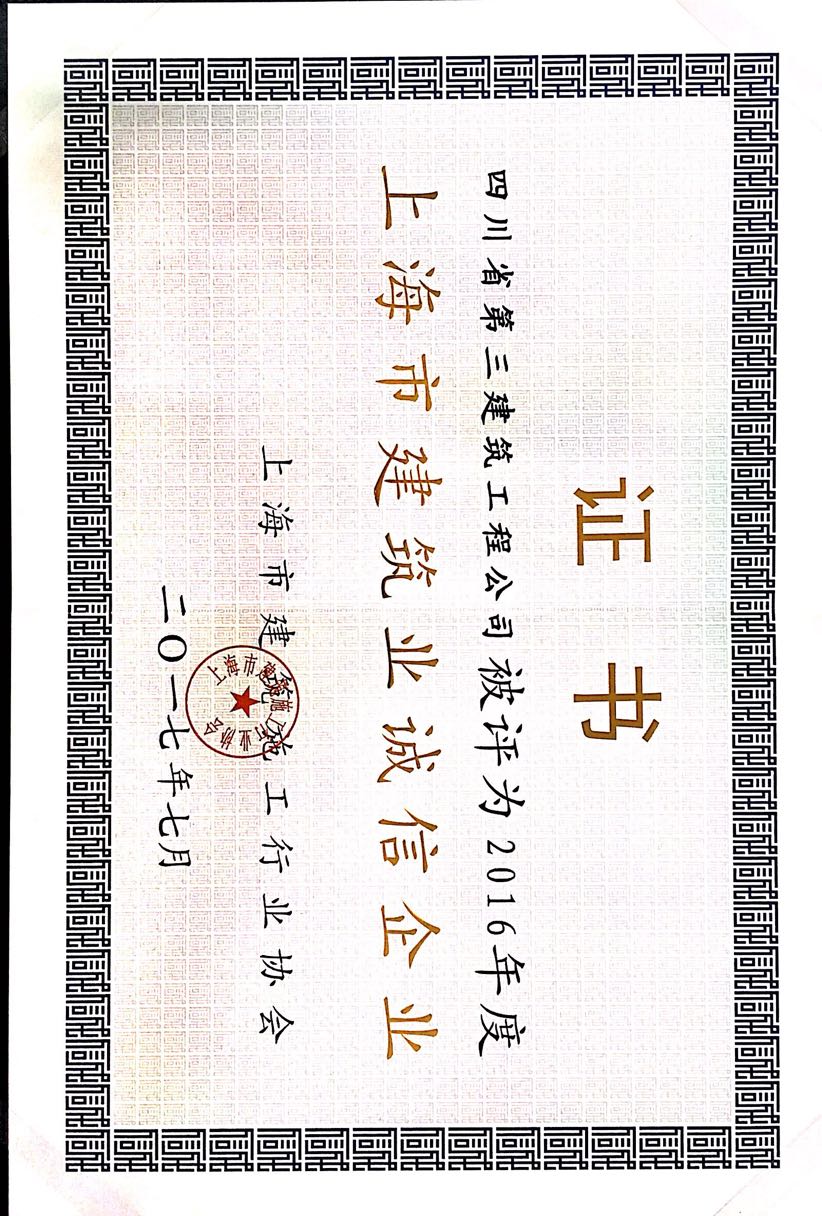 证书
四川省第三建筑工程公司被评为2016年度
上海市建筑业诚信企业
上海市建筑施工行业协会
二〇一七年七月